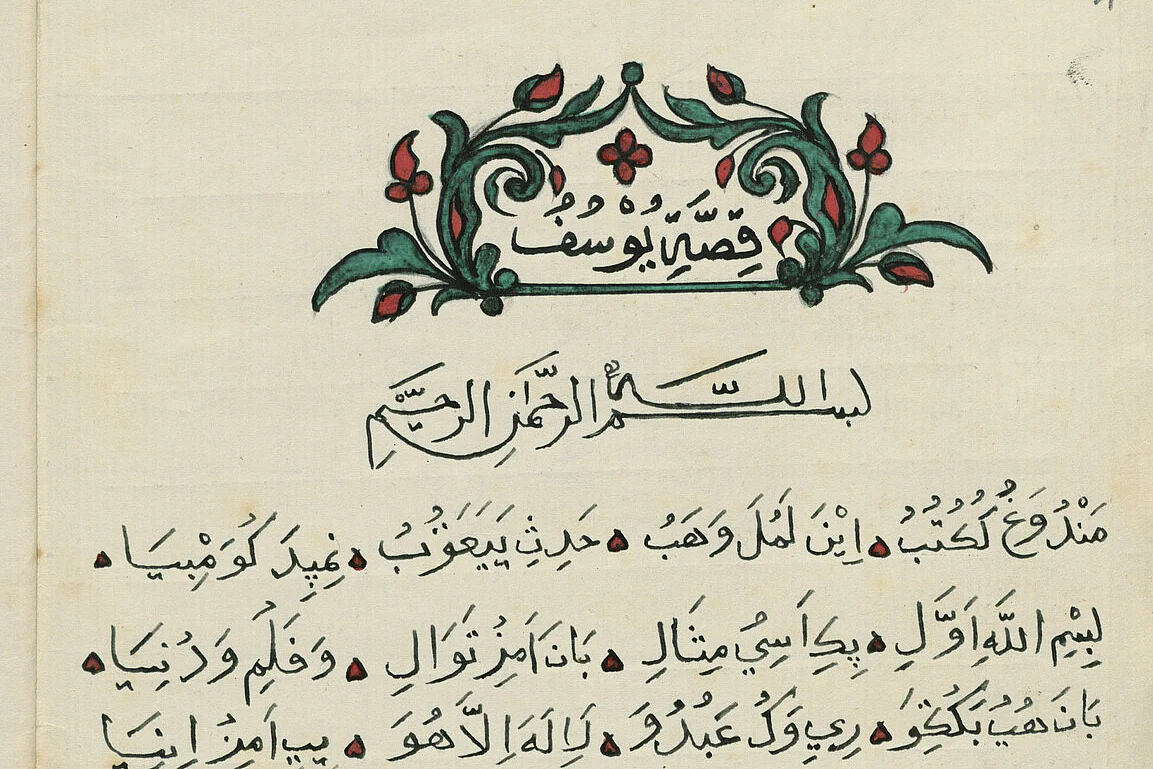 قِصَّةِ يُوْسُفُ
بسم الله الرحمٰن الرحيم
مَنْدُ وَغُ لَكُتُبُ اِيْنَ لَمُلَ وَهَبُ حَدِثِ يَيَعَقُوْبُ نِمِپِدَ كُوَمْبِيَا
بِسْمِ اللَّهِ اَوَّلِ پِكِ اَسِيُ مِثَالِ بَانَ اَمِزُ تَوَالِ وَ فَلَمِ وَ دُنِيَا
بَانَ هُبُ بَكُڠِوَ رِي وَكُ عَبُدُوَ لَا اِلَهَ اِلَّا هُوَ يِپِ اَمِزُ اِنِيَا